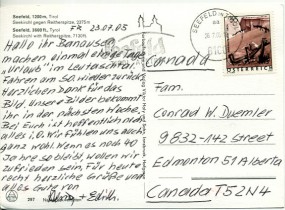 Seefeld, 1200m, Tyrol
Seekirchl gegen Reitherspitze, 2375m
Seefeld, 3600 ft., Tyrol
Seekirchl with Reitherspitze
Fr 23.07.03
Hallo Ihr Banausen
machen einmal eine Tage
"Urlaub" im Leutaschtal.
Fahren am SA wieder zurück
Herzlichen Dank für das
Bild. Unsere Bilder bekommt
ihr in der nächsten Woche.
Bei Euch ist hoffentlich auch
alles i.O. Wir fühlen uns auch
ganz wohl. Wenn es noch 40
Jahre so bleibt, wollen wir
zufrieden sein. Für heute
recht herzliche Grüße und
alles Gute von
+ Edith
SEEFELD IN
ÖSTERREICH
Canada
Fam.
Conrad W. Duemler
9832-142 Street
Edmonton 51 Alberta
Canada T52N4